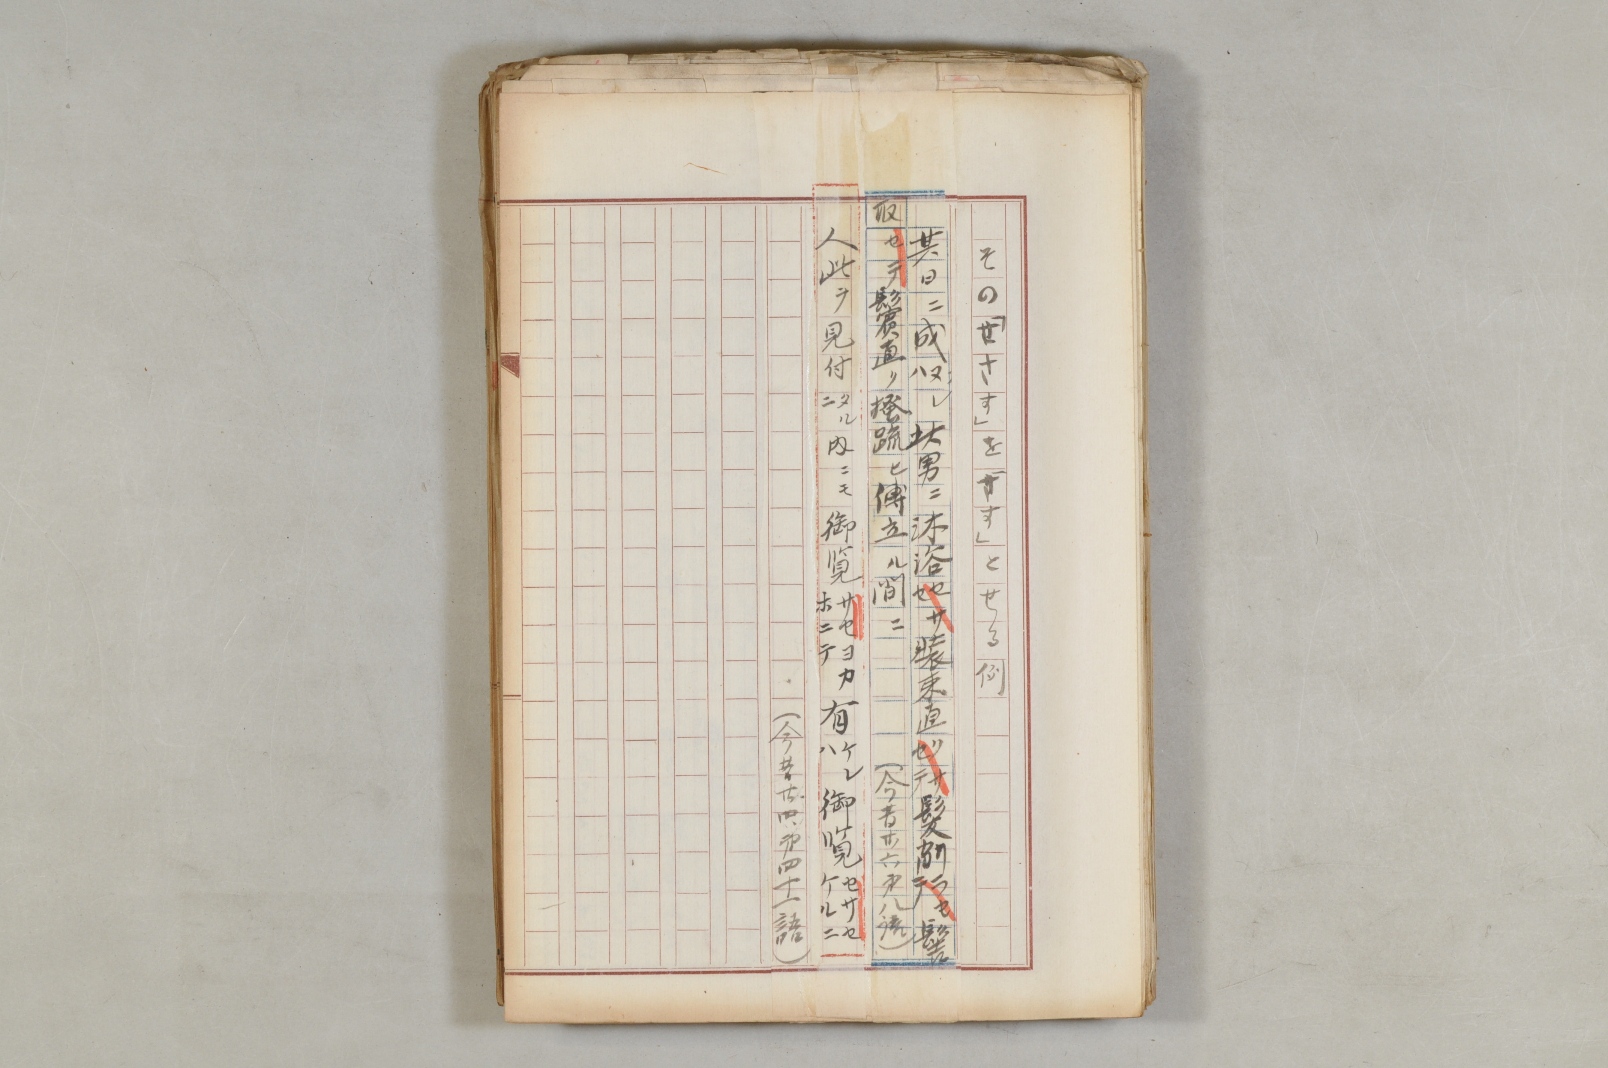 その「せさす」を「さす」とせる例
其日ニ成ヌレハ此男ニ沐浴セサセ装束直サセテ髪剃ラセテ鬚
取セテ鬢直リ掻疏ヒ傅立ル間ニ
(今昔廿六第八語)
人此ヲ見付タルニ内ニモ御覧サセヨカホニテ有ケレハ御覧セサセケルニ
(今昔廿四第四十一語)